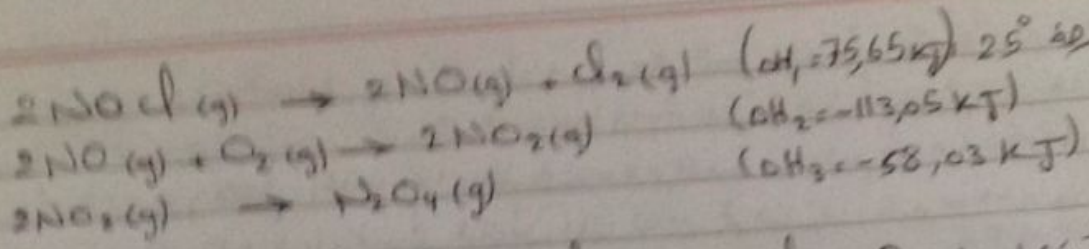 2NOCl(g) → 2NO(g) + Cl₂(g) (ΔH₁=75,65kJ) 25°
2NO(g) + O₂(g) → 2NO₂(g) (ΔH₂=-113,05 KJ)
2NO₂(g) → N₂O₄(g) (ΔH₃=-58,03 KJ)